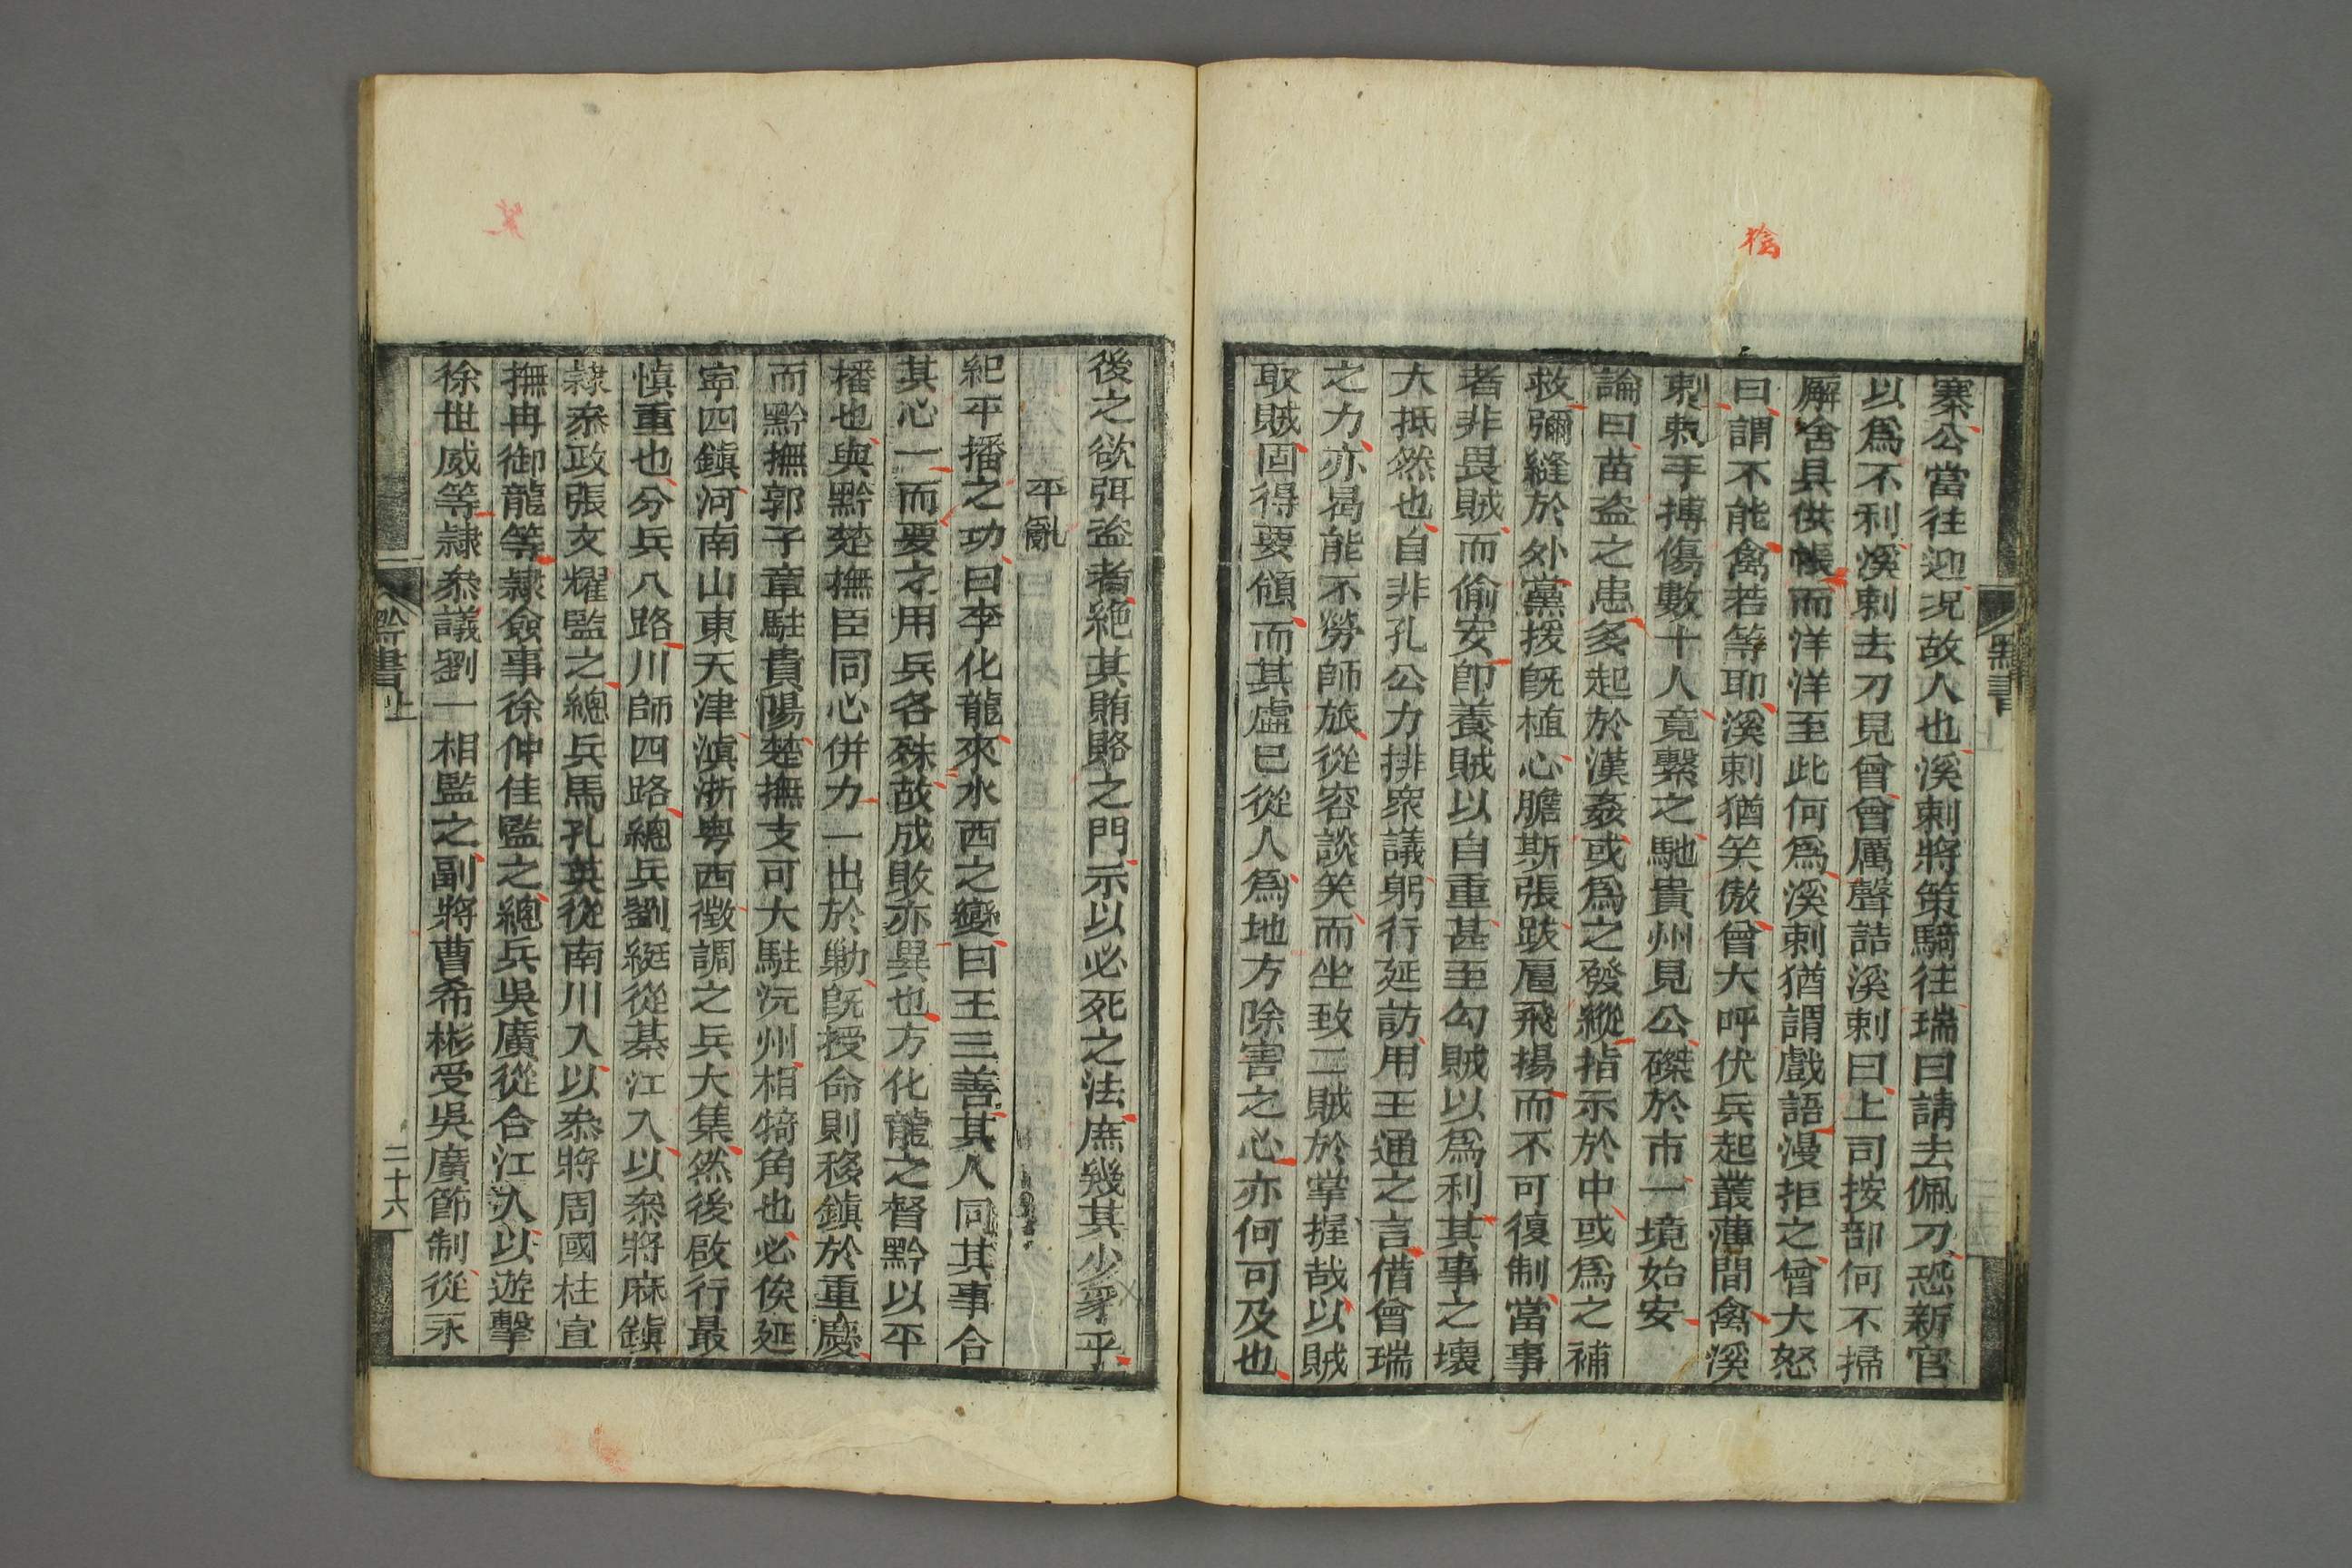 檎
寨公當往迎況故人也溪刺將策騎往瑞曰請去佩刀恐新官
以爲不利溪刺去刀見曾曾厲聲詰溪刺曰上司按部何不掃
廨舍具供帳而洋洋至此何爲溪刺猶謂戲語漫拒之曾大怒
曰謂不能禽若等耶溪刺猶笑傲曾大呼伏兵起叢薄間禽溪
刺刺手搏傷數十人竟繫之馳貴州見公磔於市一境始安
論曰苗盗之患多起於漢姦或爲之發縱指示於中或爲之補
救彌縫於外黨援旣植心膽斯張跋扈飛揚而不可復制當事
者非畏賊而偷安卽養賊以自重甚至勾賊以爲利其事之壞
大抵然也自非孔公力排衆議躬行延訪用王通之言借曾瑞
之力亦曷能不勞師旅從容談笑而坐致二賊於掌握哉以賊
取賊固得要領而其虛已從人爲地方除害之心亦何可及也
黔書 上
後之欲弭盗者絶其賄賂之門示以必死之法庶幾其少豸乎
平亂
紀平播之功曰李化龍來水西之變曰王三善其人同其事合
其心一而要之用兵各殊故成敗亦異也方化龍之督黔以平
播也與黔楚撫臣同心併力一出於勦旣授命則移鎮於重慶
而黔撫郭子章駐貴陽楚撫支可大駐沅州相犄角也必俟延
寧四鎮河南山東天津滇浙粤西徵調之兵大集然後啟行最
愼重也分兵八路川師四路總兵劉綎從綦江入以叅將麻鎮
隷叅政張文耀監之總兵馬孔英從南川入以叅將周國柱宣
撫冉御龍等隷僉事徐仲佳監之總兵吳廣從合江入以遊擊
徐世威等隷叅議劉一相監之副將曹希彬受吳廣節制從永
黔書 上 二十六